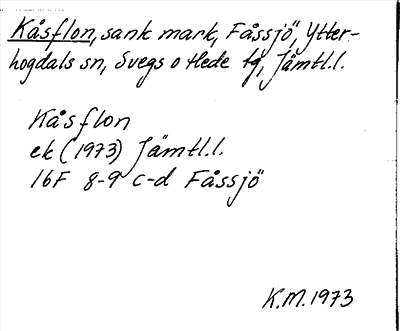 Kåsflon, sank mark, Fåssjö, Ytter-
hogdals sn, Svegs o Hede tg, Jämtl.l.
Kåsflon
ek (1973) Jämtl.l.
16F 8-9 c-d Fåssjö
K.M. 1973